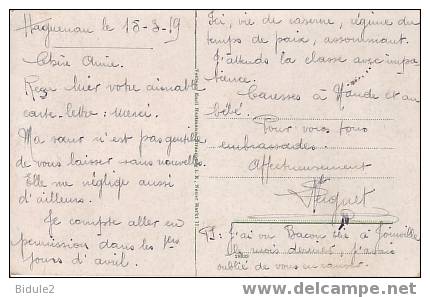 Haguenau le 18-3-19
Chère Amie.
Reçu hier votre aimable
carte-lettre : merci.
Ma sœur n'est pas gentille
de vous laisser sans nouvelles.
Elle me néglige aussi
d'ailleurs.
Je compte aller en
permission dans les 1ers
jours d'avril.
Ici, vie de caserne, régime du
temps de paix, assommant.
J'attends la classe avec impa-
tience.
Caresses à Maude et au
bébé.
Pour vous tous
embrassades.
Affectueusement
PS: J'ai vu Bacon à Joinville
le mois dernier, j'avais
oublié de vous en causer
Bidule2
delcampe.net